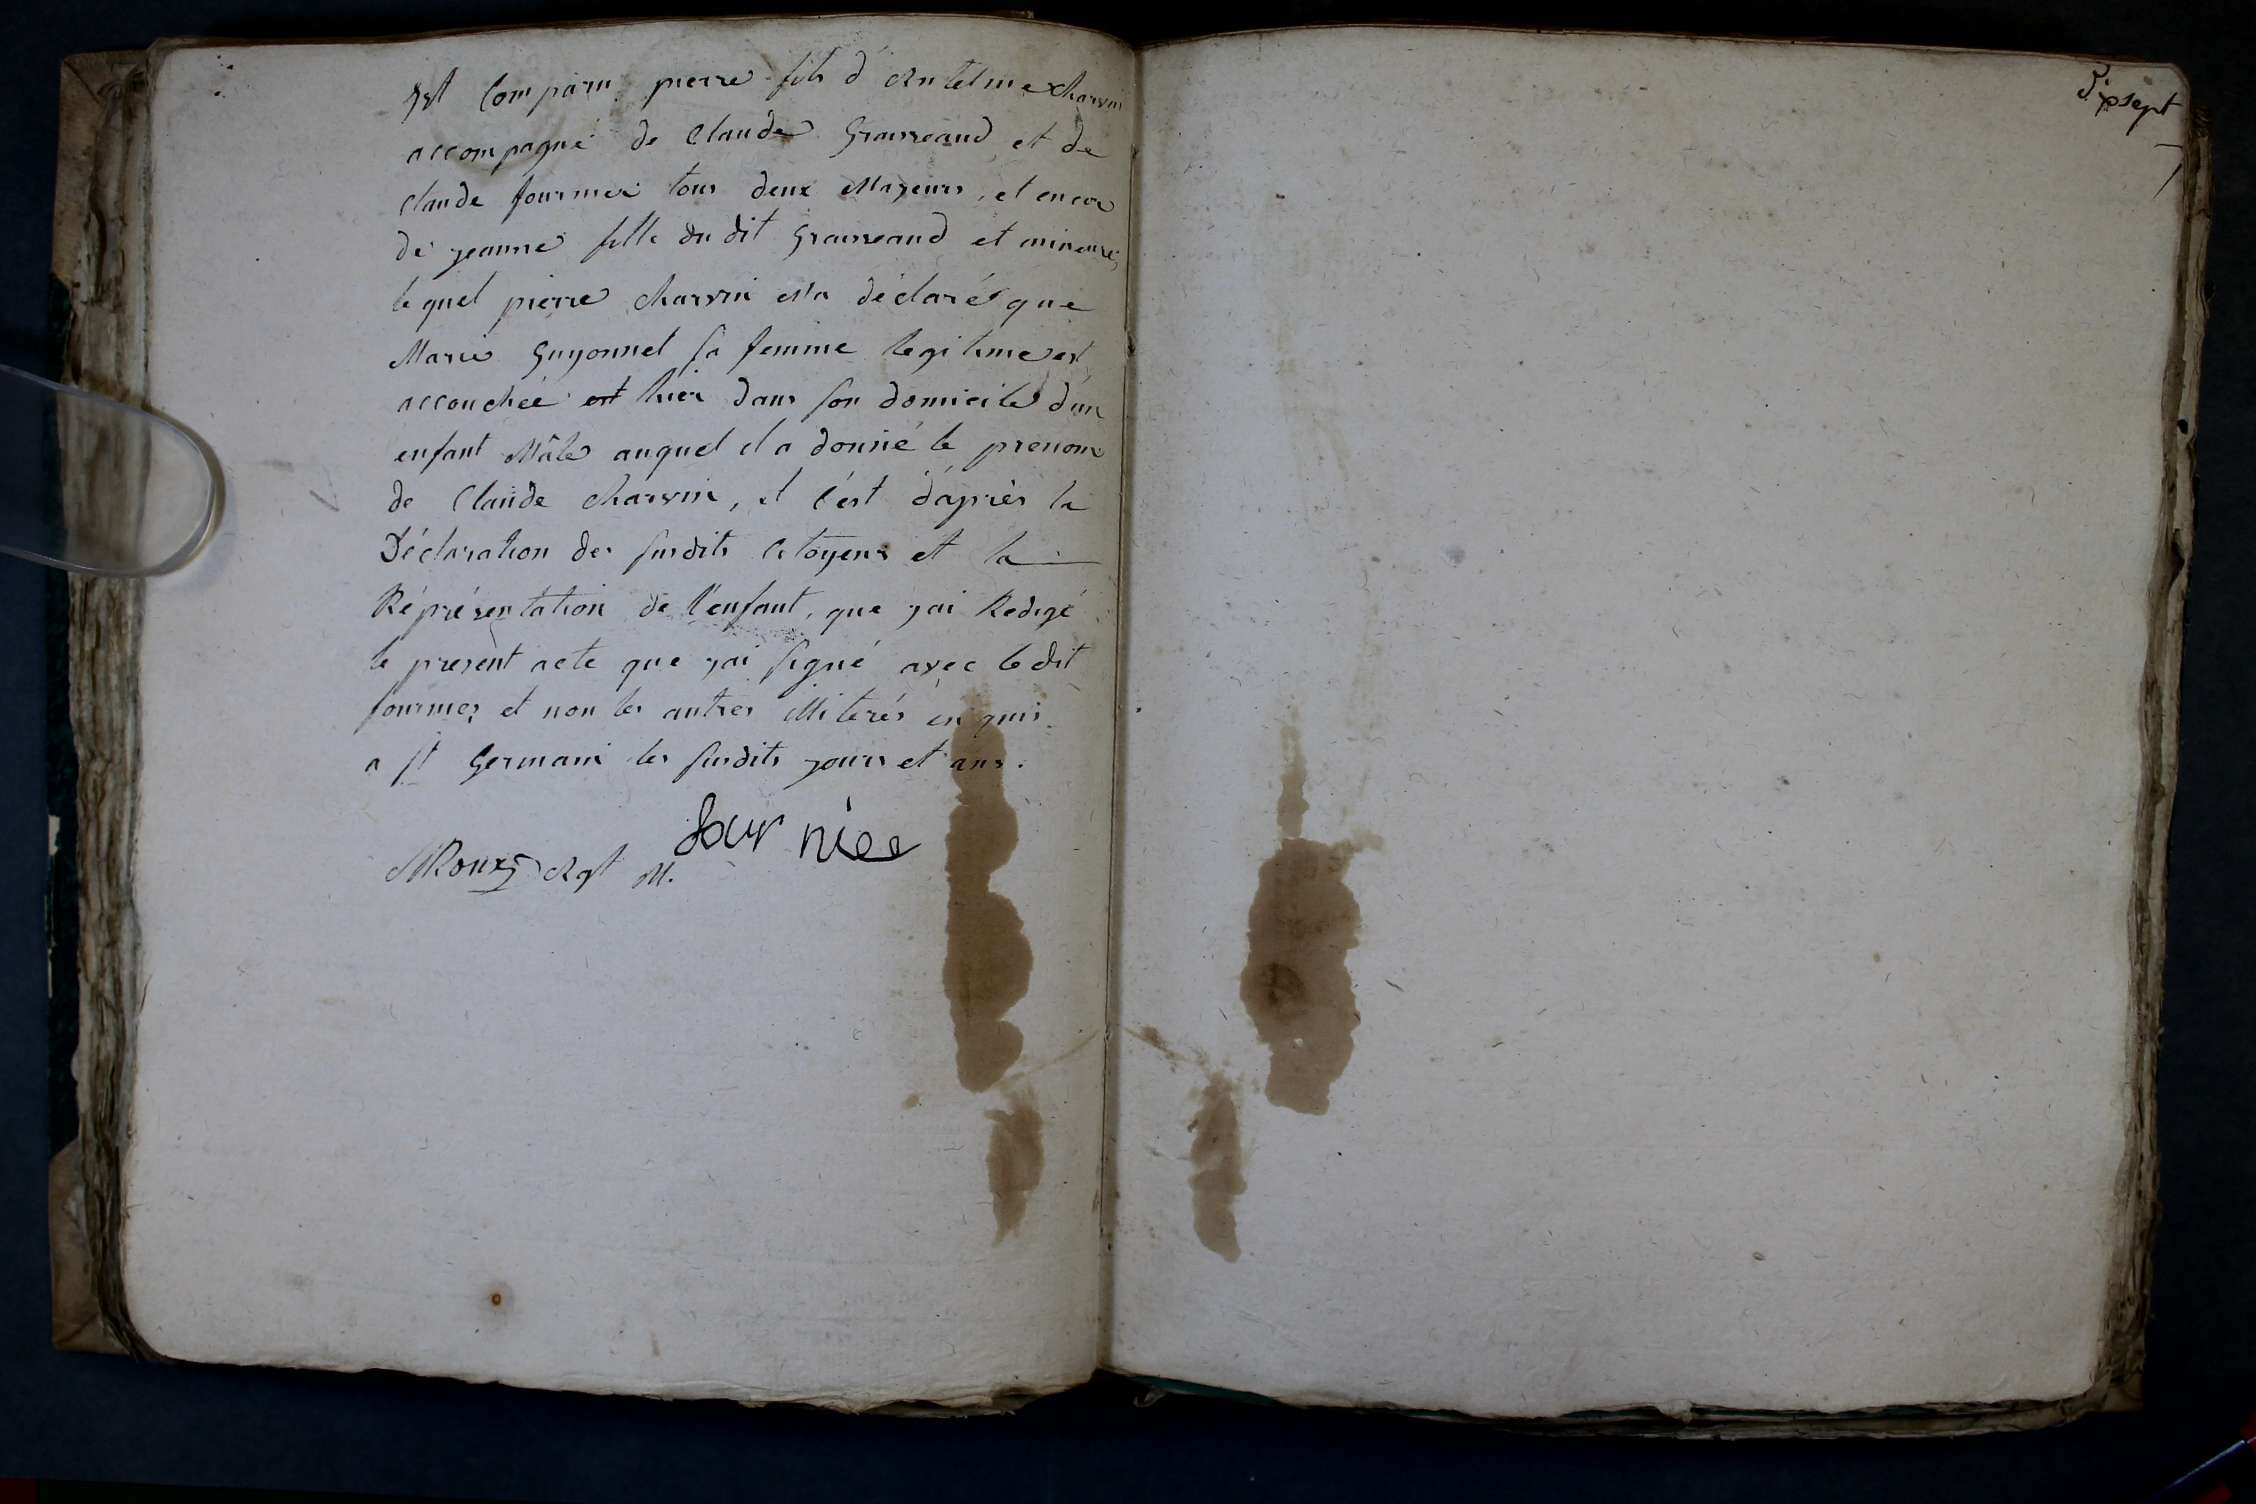 Est Comparu pierre fils d'Antelme Charvin
accompagné de Claude Grasseaud et de
Claude fournier tous deux Majeurs, et encore
de jeanne fille du dit Grasseaud et mineure,
lequel pierre charvin m'a déclaré que
Marie Guyonnet sa femme legitime est
accouchée est hier dans son domicile d'un
enfant Mâle auquel il a donné le prenom
de Claude charvin, et c'est d'après la
Déclaration des susdits Citoyens et la
Réprésentation de l'enfant, que jai Redigé
le present acte que jai signé avec le dit
fournier et non les autres illiterés enquis
a st Germain les susdits jours et ans.
fournier
Roux Agt M.
Dixsept